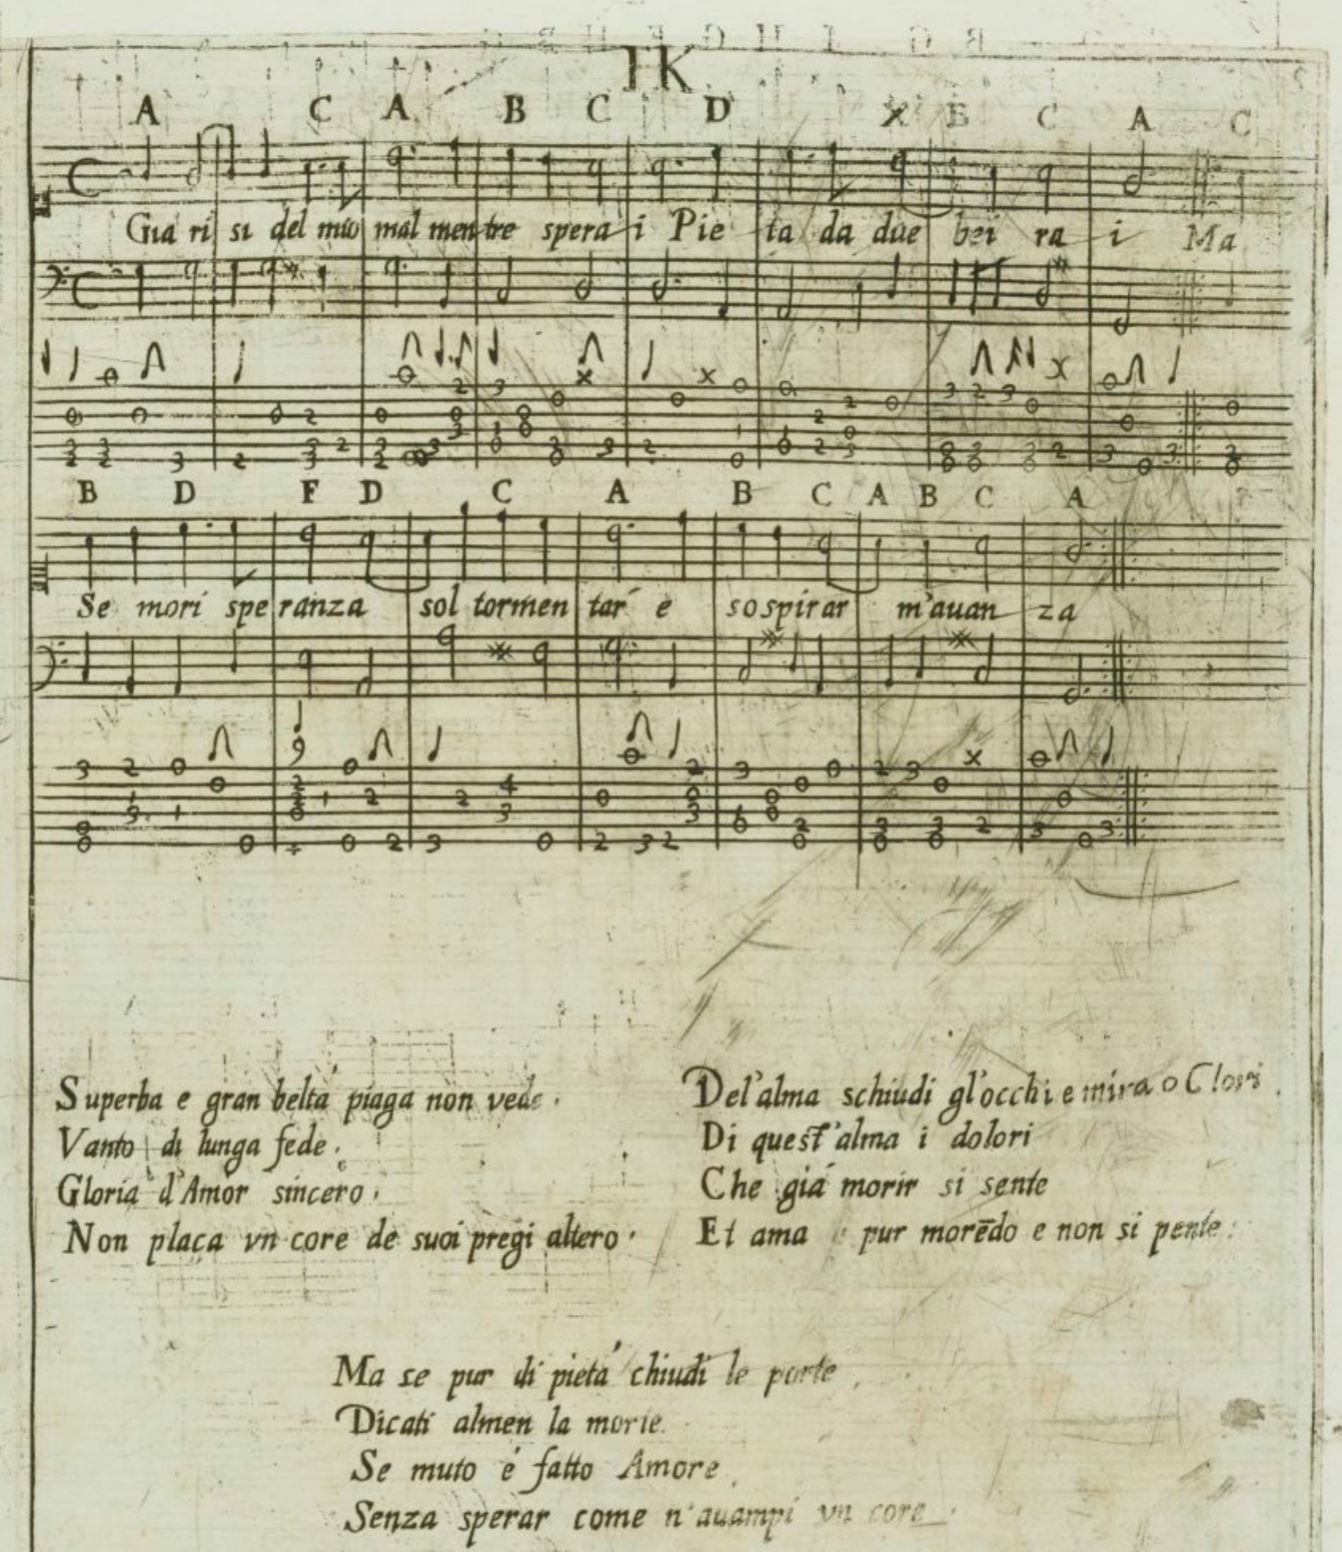 IK
A C A B C D X B C A C
Gia ri si del mio mal men tre spera i Pie ta da due bei ra i Ma
B D F D C A B C A B C A
Se mori spe ranza sol tormen tar e sospirar m'auan za
Superba e gran beltá piaga non vede.
Vanto di lunga fede.
Gloria d'Amor sincero.
Non placa vn core de suoi pregi altero.
Del'alma schiudi gl'occhi e mira o Clori.
Di quest'alma i dolori
Che giá morir si sente
Et ama e pur morēdo e non si pente.
Ma se pur di pietá chiudi le porte.
Dicati almen la morte.
Se muto é fatto Amore.
Senza sperar come n'auampi vn core.